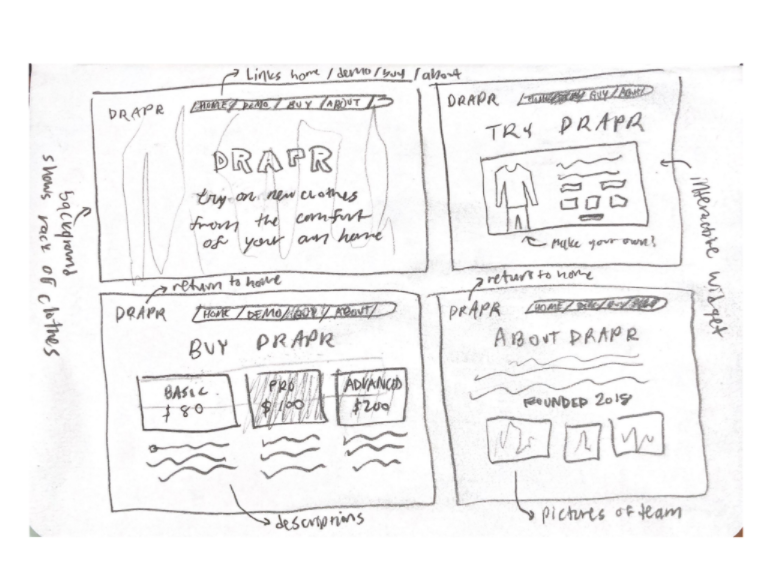 Links home / demo / buy / about
DRAPR
HOME / DEMO / BUY / ABOUT
DRAPR
try on new clothes
from the comfort
of your own home
background
shows rack of clothes
DRAPR
HOME / DEMO / BUY / ABOUT
TRY DRAPR
Make your own!
interactive widget
return to home
DRAPR
HOME / DEMO / BUY / ABOUT /
BUY DRAPR
BASIC
$80
PRO
$100
ADVANCED
$200
descriptions
return to home
DRAPR
HOME / DEMO / BUY / ABOUT
ABOUT DRAPR
FOUNDED 2018
pictures of team